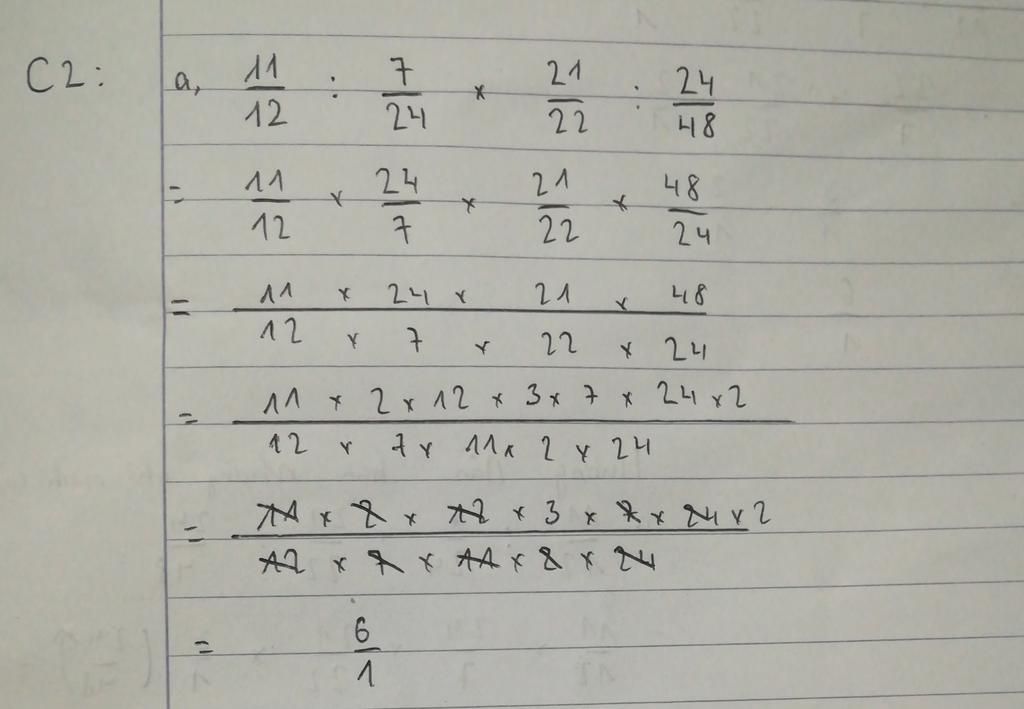 C2: a, 11/12 : 7/24 × 21/22 : 24/48
= 11/12 × 24/7 × 21/22 × 48/24
= (11 × 24 × 21 × 48)/(12 × 7 × 22 × 24)
= (11 × 2 × 12 × 3 × 7 × 24 × 2)/(12 × 7 × 11 × 2 × 24)
= (11 × 2 × 12 × 3 × 7 × 24 × 2)/(12 × 7 × 11 × 2 × 24)
= 6/1